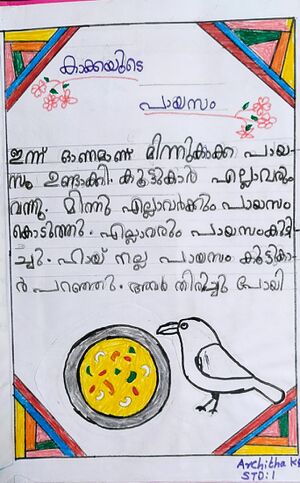 കാക്കയുടെ
പായസം
ഇന്ന് ഓണമാണ് മിന്നുകാക്ക പായ
സം ഉണ്ടാക്കി. കൂട്ടുകാർ എല്ലാവരും
വന്നു. മിന്നു എല്ലാവർക്കും പായസം
കൊടുത്തു. എല്ലാവരും പായസംകുടി-
ച്ചു. ഹായ് നല്ല പായസം കൂട്ടുകാ-
ർ പറഞ്ഞു. അവർ തിരിച്ചു പോയി
Architha K
STD:1